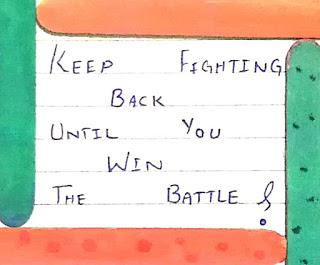 KEEP FIGHTING
BACK
UNTIL YOU
WIN
THE BATTLE !